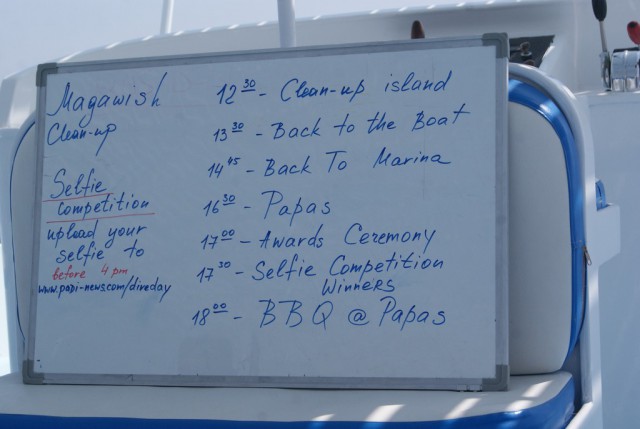 Magawish
Clean-up
Selfie
competition
upload your
selfie to
before 4 pm
www.padi-news.com/diveday
12 30 - Clean-up island
13 30 - Back to the Boat
14 45 - Back To Marina
16 30 - Papas
17 00 - Awards Ceremony
17 30 - Selfie Competition
Winners
18 00 - BBQ @ Papas